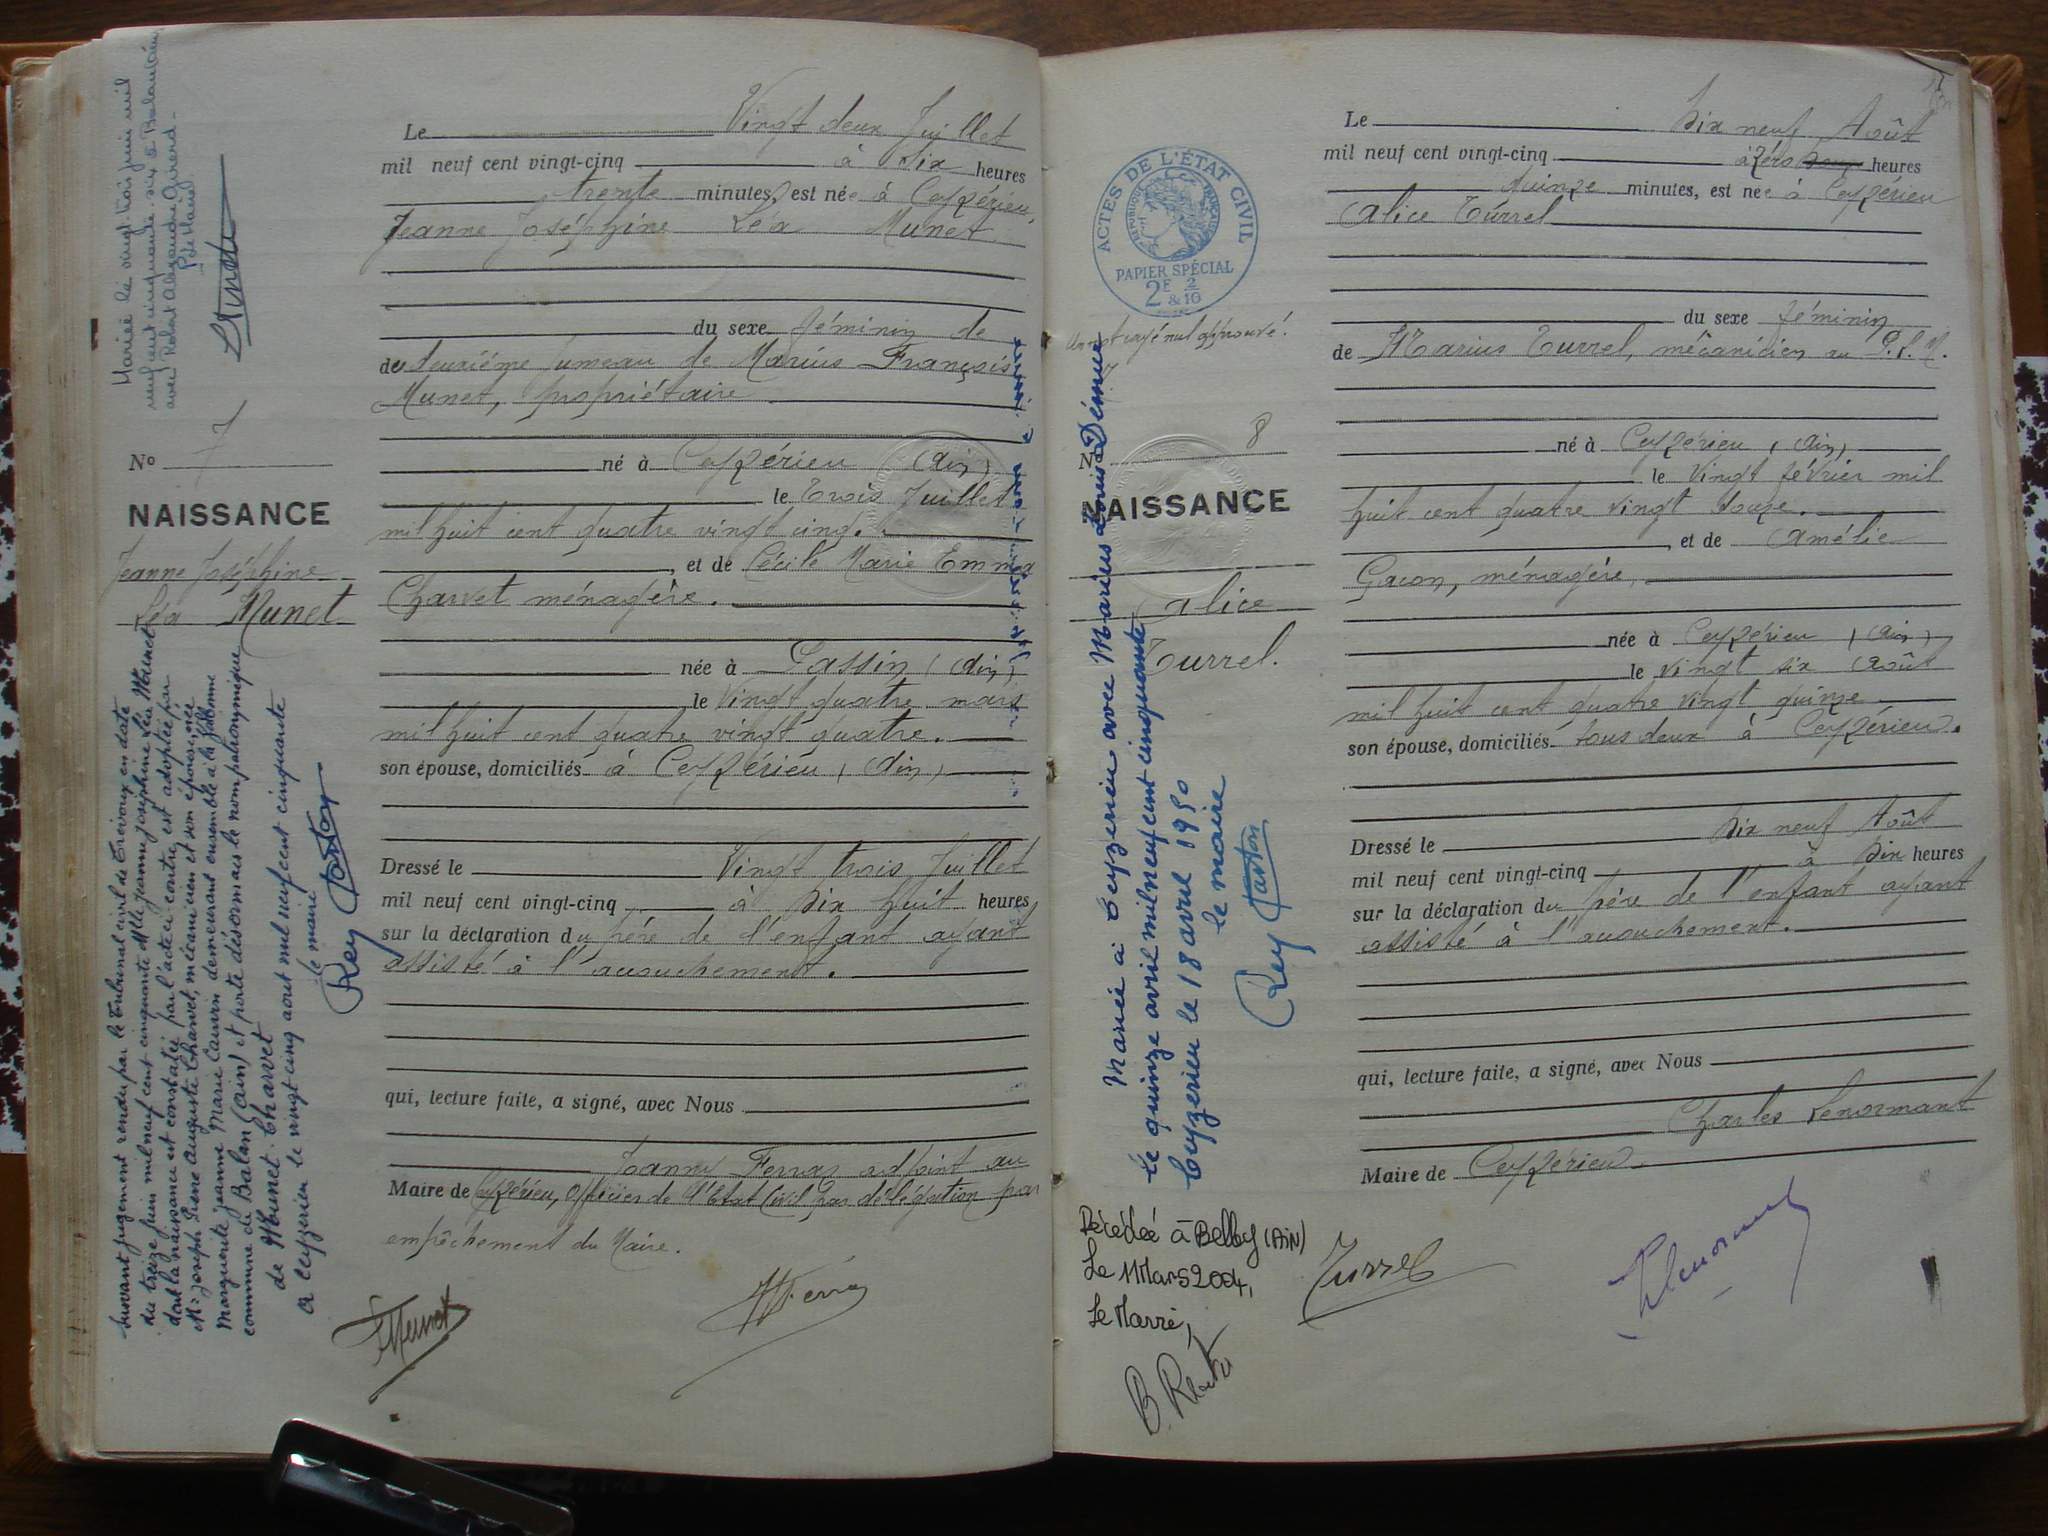 Mariée le vingt trois juin mil
neuf cent cinquante-six à
avec Robert Alexandre
Le Maire
No 7
NAISSANCE
Jeanne Joséphine
Léa Munet
Suivant jugement rendu par le Tribunal civil de Trévoux en date
du treize juin mil neuf cent cinquante Mlle Jeanne Joséphine Léa Munet
dont la naissance est constatée par l'acte ci contre, est adoptée par
Mr Joseph Pierre Auguste Charvet, mécanicien et son épouse, née
Marguerite Jeanne Marie demeurant ensemble à
commune de Balan (Ain) et porte désormais le nom patronymique
de Munet-Charvet
A Ceyzerieu le vingt cinq aout mil neuf cent cinquante
le maire
Rey
Le Vingt deux Juillet
mil neuf cent vingt-cinq à six heures
trente minutes, est née à Ceyzérieu,
Jeanne Joséphine Léa Munet
du sexe féminin de
de deuxième Jumeau de Marius François
Munet, propriétaire
né à Ceyzérieu (Ain)
le Trois Juillet
mil huit cent quatre vingt cinq.
, et de Cécile Marie Emma
Charvet ménagère.
née à (Ain)
le Vingt quatre mars
mil huit cent quatre vingt quatre.
son épouse, domiciliés à Ceyzérieu (Ain)
Dressé le Vingt trois Juillet
mil neuf cent vingt-cinq à Dix huit heures
sur la déclaration du père de l'enfant ayant
assisté à l'accouchement.
qui, lecture faite, a signé, avec Nous
Joanny Ferraz adjoint au
Maire de Ceyzérieu, Officier de l'Etat Civil par délégation par
empêchement du Maire.
Munet
ACTES DE L'ÉTAT CIVIL
RÉPUBLIQUE FRANÇAISE
PAPIER SPÉCIAL
2E 2
& 10
Un mot rayé nul approuvé.
No 8
NAISSANCE
Alice
Turrel.
Mariée à Ceyzerieu avec Marius Louis
le quinze avril mil neuf cent cinquante
Ceyzerieu le 18 avril 1950
le maire
Rey
Décédée à Belley (AIN)
Le Mars 2004,
Le Maire,
B.
Le Dix neuf Août
mil neuf cent vingt-cinq à zéro heures
quinze minutes, est née à Ceyzérieu
Alice Turrel
du sexe féminin
de Marius Turrel, mécanicien au P.L.M.
né à Ceyzérieu (Ain)
le vingt février mil
huit cent quatre vingt douze.
, et de Amélie
Gacon, ménagère,
née à Ceyzérieu (Ain)
le vingt six Août
mil huit cent quatre vingt quinze
son épouse, domiciliés tous deux à Ceyzérieu.
Dressé le Dix neuf Août
mil neuf cent vingt-cinq à Dix heures
sur la déclaration du père de l'enfant ayant
assisté à l'accouchement.
qui, lecture faite, a signé, avec Nous
Charles Lenormant
Maire de Ceyzérieu
Turrel
Lenormant